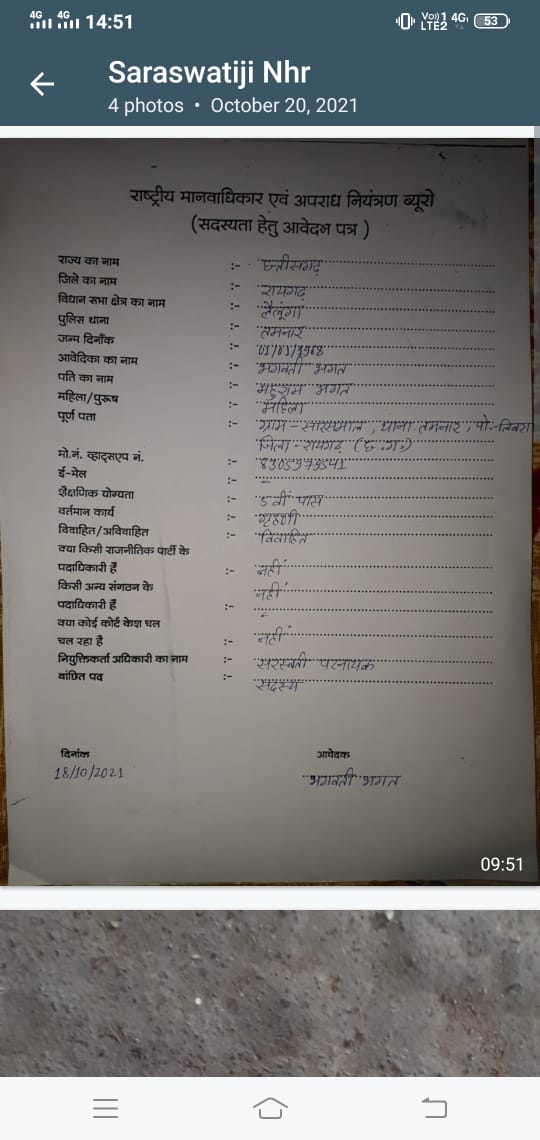 4G 4G 14:51 Vo)) 1 4G LTE2 53
Saraswatiji Nhr
4 photos • October 20, 2021
राष्ट्रीय मानवाधिकार एवं अपराध नियंत्रण ब्यूरो
(सदस्यता हेतु आवेदन पत्र )
राज्य का नाम :- छत्तीसगढ़
जिले का नाम :- रायगढ़
विधान सभा क्षेत्र का नाम :- लैलूंगा
पुलिस थाना :- तमनार
जन्म दिनाँक :- 01/01/1968
आवेदिका का नाम :- भगवती भगत
पति का नाम :- भगत
महिला/पुरूष :- महिला
पूर्ण पता :- ग्राम - सारसमाल, थाना तमनार, पो.-लिबरा
जिला - रायगढ़ (छ.ग.)
मो.नं. व्हाट्सएप नं. :- 8305979541
ई-मेल :- -
शैक्षणिक योग्यता :- 5वीं पास
वर्तमान कार्य :- गृहणी
विवाहित/अविवाहित :- विवाहित
क्या किसी राजनीतिक पार्टी के
पदाधिकारी हैं :- नहीं
किसी अन्य संगठन के नहीं
पदाधिकारी हैं :- -
क्या कोई कोर्ट केश चल
चल रहा है :- नहीं
नियुक्तिकर्ता अधिकारी का नाम :- सरस्वती पटनायक
वांछित पद :- सदस्य
दिनांक आवेदक
18/10/2021 भगवती भगत
09:51